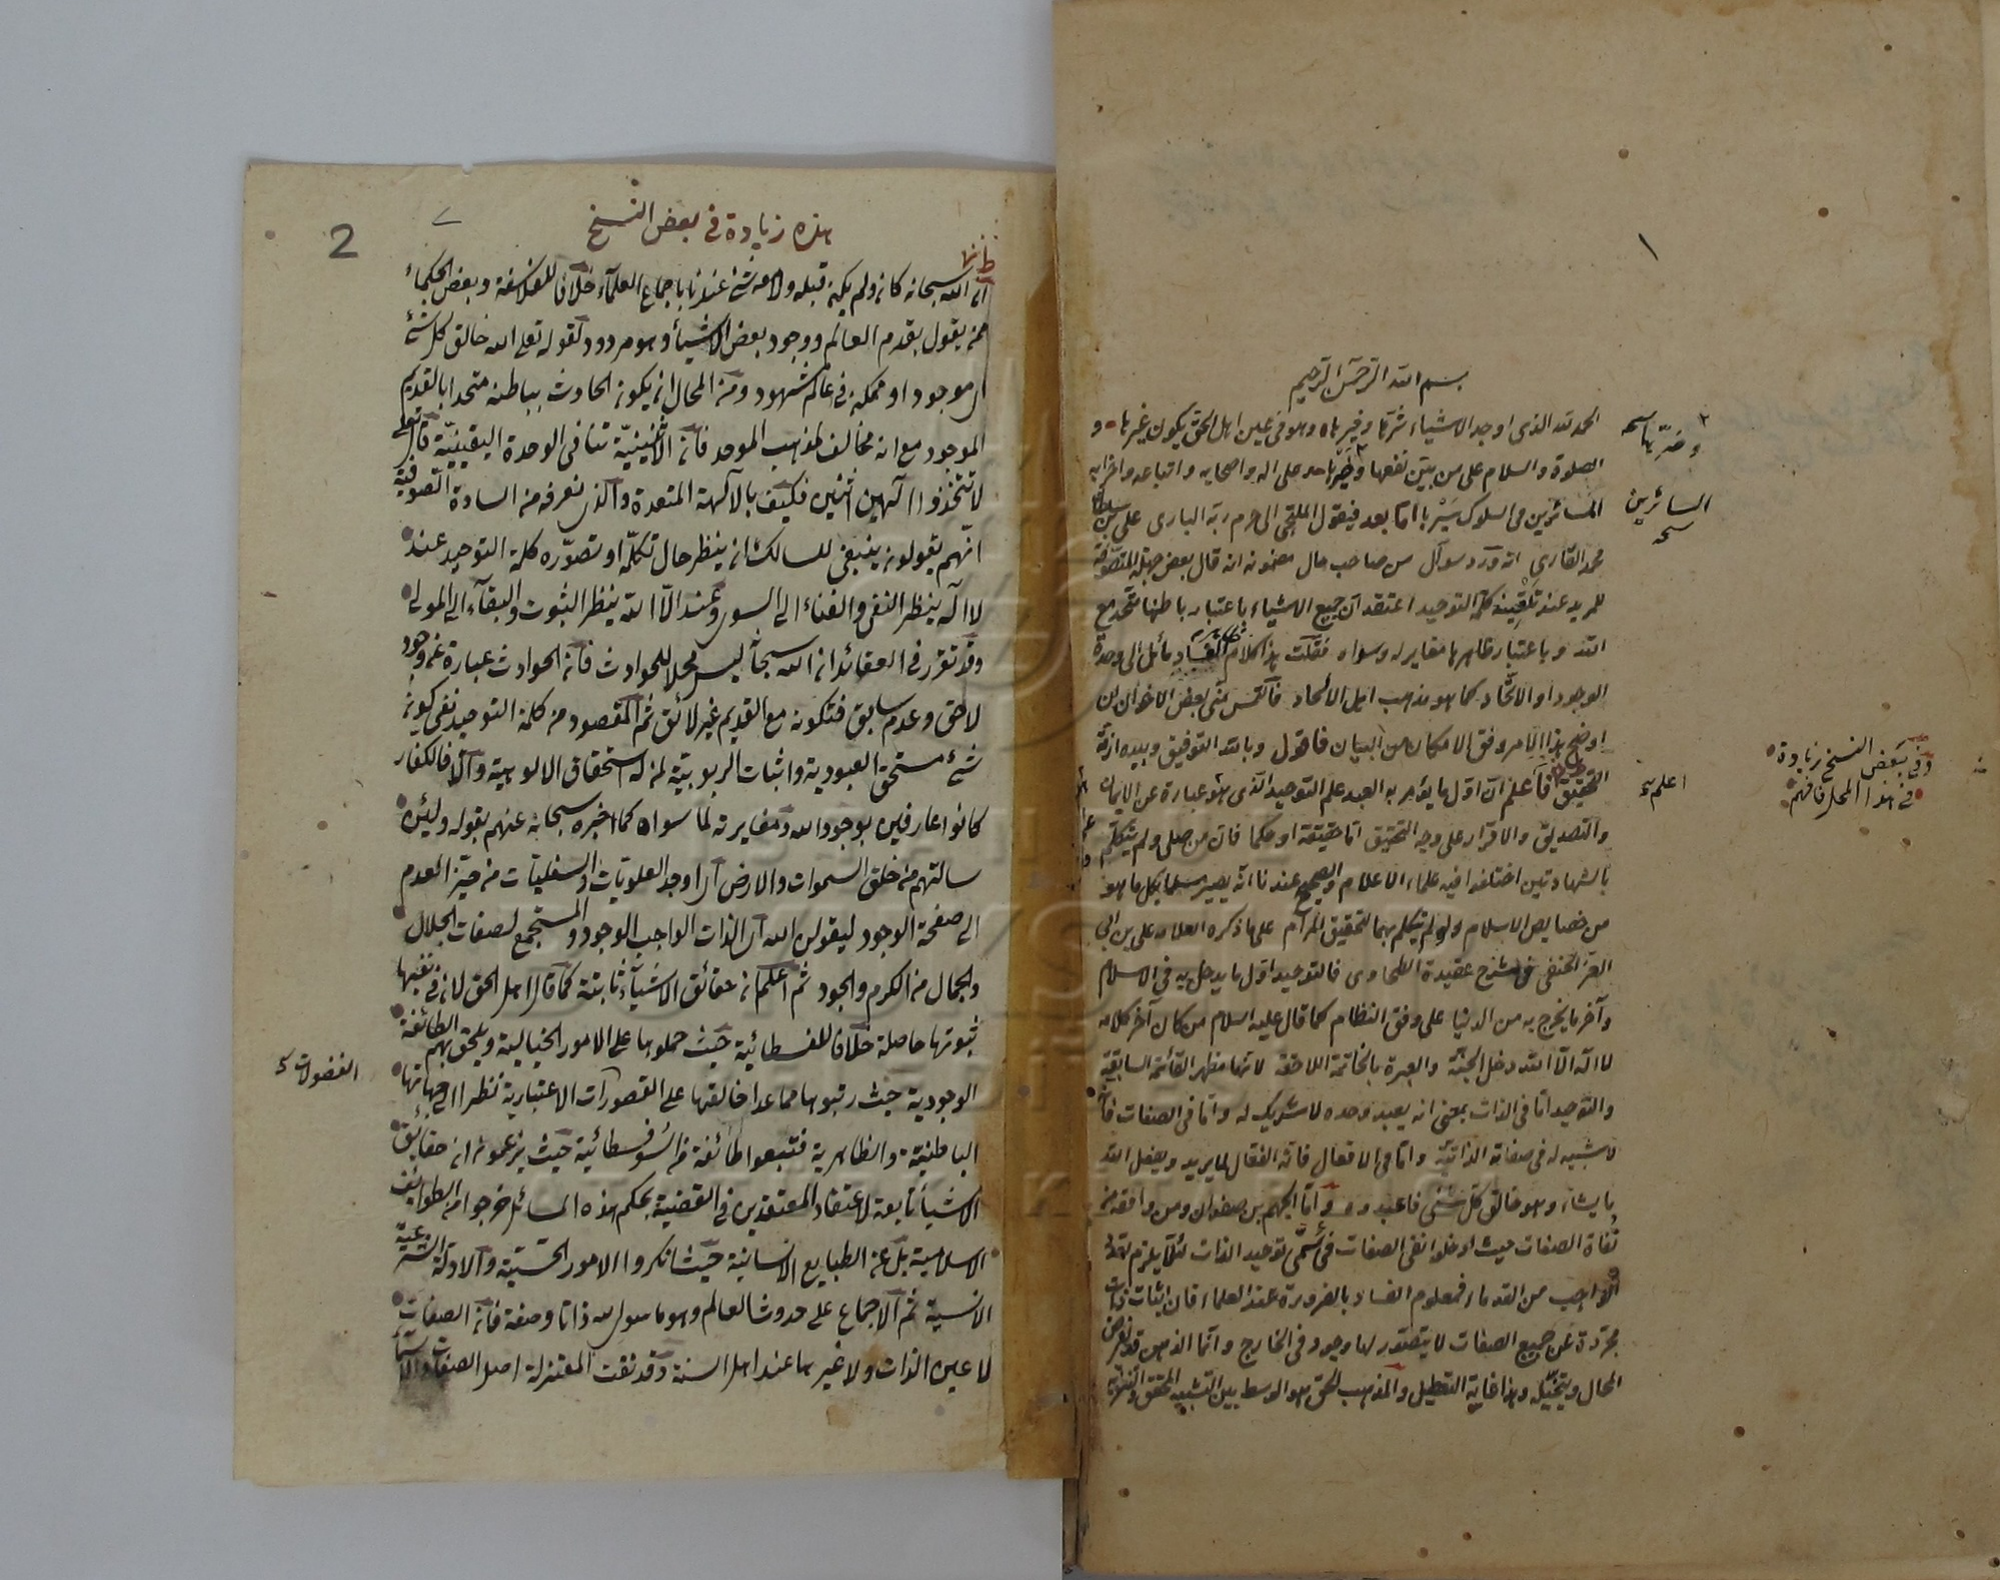 ١
بسم الله الرحمن الرحيم
الحمد لله الذى اوجد الاشياء شرها وخيرها وهو فى عين اهل الحق يكون غيرها و
الصلوة والسلام على من بين نفعها وضيرها وعلى اله واصحابه واتباعه واحزابه
السائرين فى السلوك سيرها اما بعد فيقول الملتجى الى حرم ربه البارى على بن سلطان
محمد القارى انه ورد سوآل من صاحب حال مضمونه انه قال بعض جهلة المتصوفة
للمريد عند تلقينه كلمة التوحيد اعتقد ان جميع الاشياء باعتبار باطنها متحد مع
الله وباعتبار ظاهرها مغاير له وسواه فقلت هذا كلام ظاهر الفساد مائل الى وحدة
الوجود او الاتحاد كما هو مذهب اهل الالحاد فالتمس منى بعض الاخوان ان
اوضح هذا الامر وفق الامكان من البيان فاقول وبالله التوفيق وبيده ازمة
التحقيق فاعلم ان اول ما يؤمر به العبد علم التوحيد الذى هو عبارة عن الايمان
والتصديق والاقرار على وجه التحقيق اما حقيقة او حكما فان من صلى ولم يتكلم
بالشهادتين اختلفوا فيه علماء الاعلام والصحيح عندنا انه يصير مسلما بكل ما هو
من خصايص الاسلام ولو لم يتكلم بهما لتحقيق المرام على ما ذكره العلامه على بن ابى
العز الحنفى فى شرح عقيدة الطحاوى فالتوحيد اول ما يدخل به فى الاسلام
وآخر ما يخرج به من الدنيا على وفق النظام كما قال عليه السلام من كان آخر كلامه
لا اله الا الله دخل الجنة والعبرة بالخاتمة اللاحقة لانها مظهر القائمة السابقة
والتوحيد اما فى الذات بمعنى انه يعبد وحده لا شريك له واما فى الصفات فانه
لا شبيه له فى صفاته الذاتية واما فى الافعال فانه الفعال لما يريد ويفعل الله
ما يشاء وهو خالق كل شئ فاعبدوه واما الجهم بن صفوان ومن وافقه من
نفاة الصفات حيث ادخلوا نفى الصفات فى مسمى توحيد الذات لئلا يلزم تعدد
الواجب من القدماء فمعلوم الفساد بالضرورة عند العلماء فان اثبات ذات
مجردة عن جميع الصفات لا يتصور لها وجود فى الخارج وانما الذهن قد يفرض
المحال ويتخيله وهذا غاية التعطيل والمذهب الحق هو الوسط بين التشبيه المحقق والتنزيه
وضرها نسخه
السائرين
نسخه
اعلم
وفى بعض النسخ زيادة
فى هذا المحل فافهم
2
هذه زيادة فى بعض النسخ
ان الله سبحانه كان ولم يكن قبله ولا معه شئ عندنا باجماع العلماء خلافا للفلاسفة وبعض الحكماء
ممن يقول بقدم العالم ووجود بعض الاشياء وهو مردود لقوله تعالى الله خالق كل شئ
اى موجود او ممكن فى عالم شهود ومن المحال ان يكون الحادث بباطنه متحدا بالقديم
الموجود مع انه مخالف لمذهب الموحد فان الاثنينية تنافى الوحدة اليقينية قال تعالى
لا تتخذوا الهين اثنين فكيف بالآلهة المتعددة والذى نعرفه من السادة الصوفية
انهم يقولون ينبغى للسالك ان ينظر حال تكلمه او تصوره كلمة التوحيد عند
لا اله ينظر النفى والفناء الى السوى وعند الا الله ينظر الثبوت والبقاء الى المولى
وقد تقرر فى العقائد ان الله سبحانه ليس محلا للحوادث فان الحوادث عبارة عن وجود
لاحق وعدم سابق فتكون مع القديم غير لائق ثم المقصود من كلمة التوحيد نفى كون
شئ مستحق العبودية واثبات الربوبية لمن له استحقاق الالوهية والا فالكفار
كانوا عارفين بوجود الله ومغايرته لما سواه كما اخبر سبحانه عنهم بقوله ولئن
سالتهم من خلق السموات والارض اى اوجد العلويات والسفليات من حيز العدم
الى صفحة الوجود ليقولن الله اى الذات الواجب الوجود والمستجمع لصفات الجلال
والجمال من الكرم والجود ثم اعلم ان حقائق الاشياء ثابتة كما قال اهل الحق لان فى نفيها
ثبوتها حاصلة خلافا للسفسطائية حيث حملوها على الامور الخيالية ويلحق بهم الطائفة
الوجودية حيث رتبوها مما عدا خالقها على القصورات الاعتبارية نظرا الى جهاتها
الباطنية والظاهرية فتبعوا طائفة من السوفسطائية حيث يزعمون ان حقايق
الاشياء تابعة لاعتقاد المعتقدين فى القضية بحكم هذه المسائل خرجوا من الطوائف
الاسلامية بل عن الطبايع الانسانية حيث انكروا الامور الحسية والادلة الشرعية
الانسية ثم الاجماع على حدوث العالم وهو ما سوى الله ذاتا وصفة فان الصفات
لا عين الذات ولا غيرها عند اهل السنة وقد نفت المعتزلة اصل الصفات